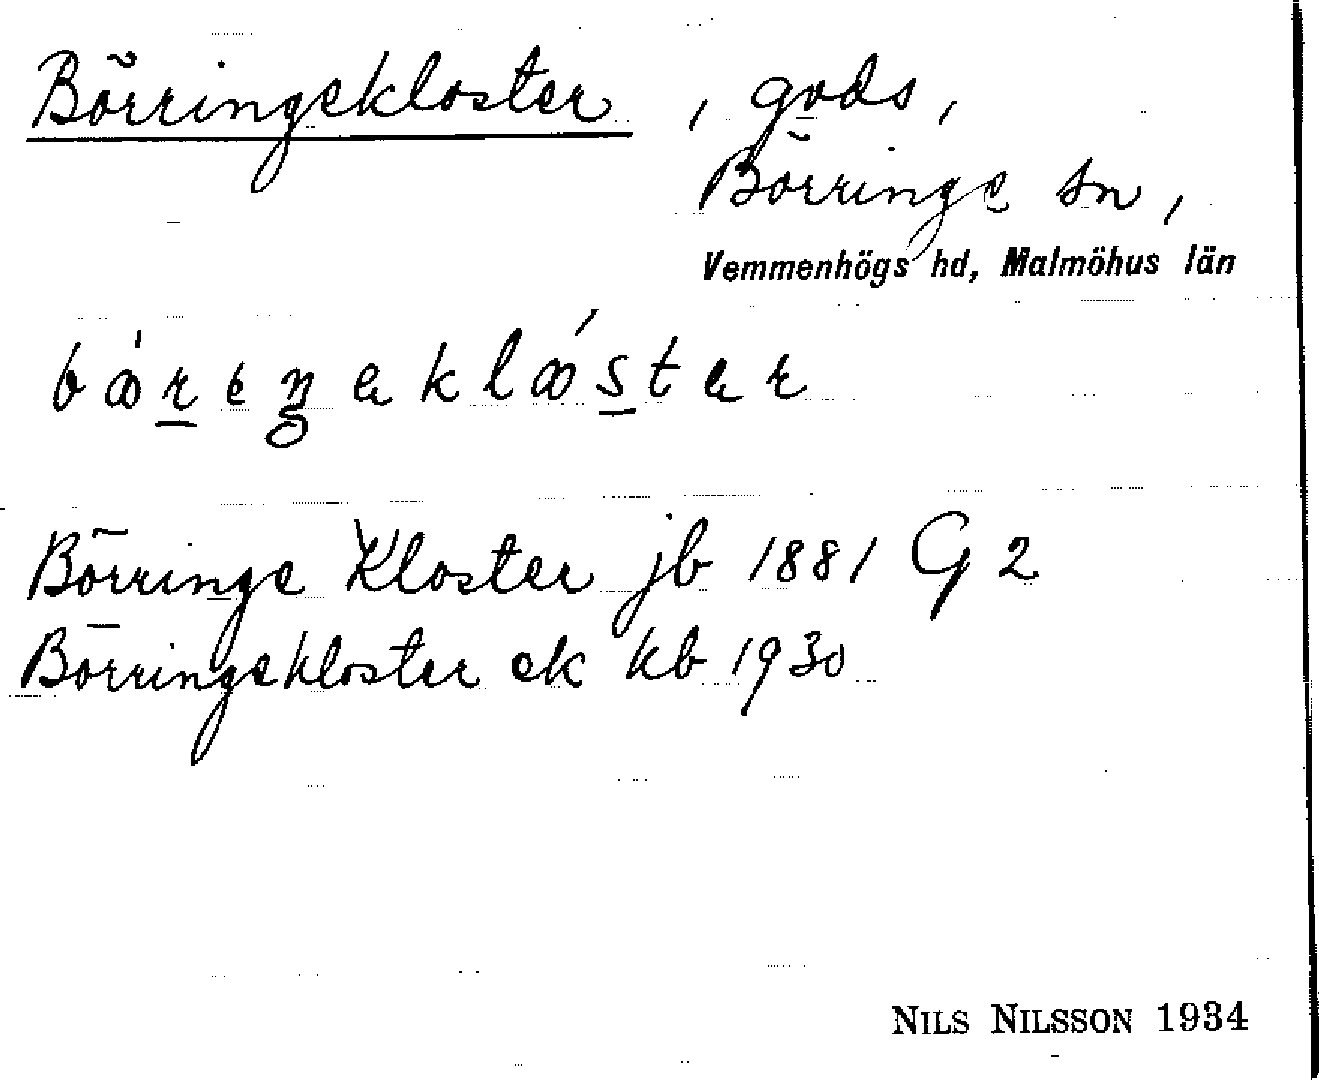 Börringekloster, gods,
Börringe sn,
Vemmenhögs hd, Malmöhus län
Börringe Kloster jb 1881 G 2
Börringekloster ek kb 1930
NILS NILSSON 1934